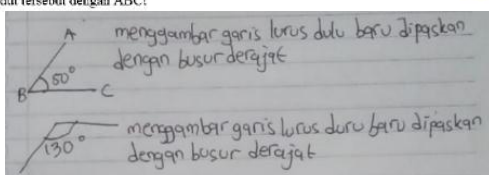 dut tersebut dengan ABC!
A menggambar garis lurus dulu baru dipaskan
dengan busur derajat
50°
B C
menggambar garis lurus duru baru dipaskan
130° dengan busur derajat